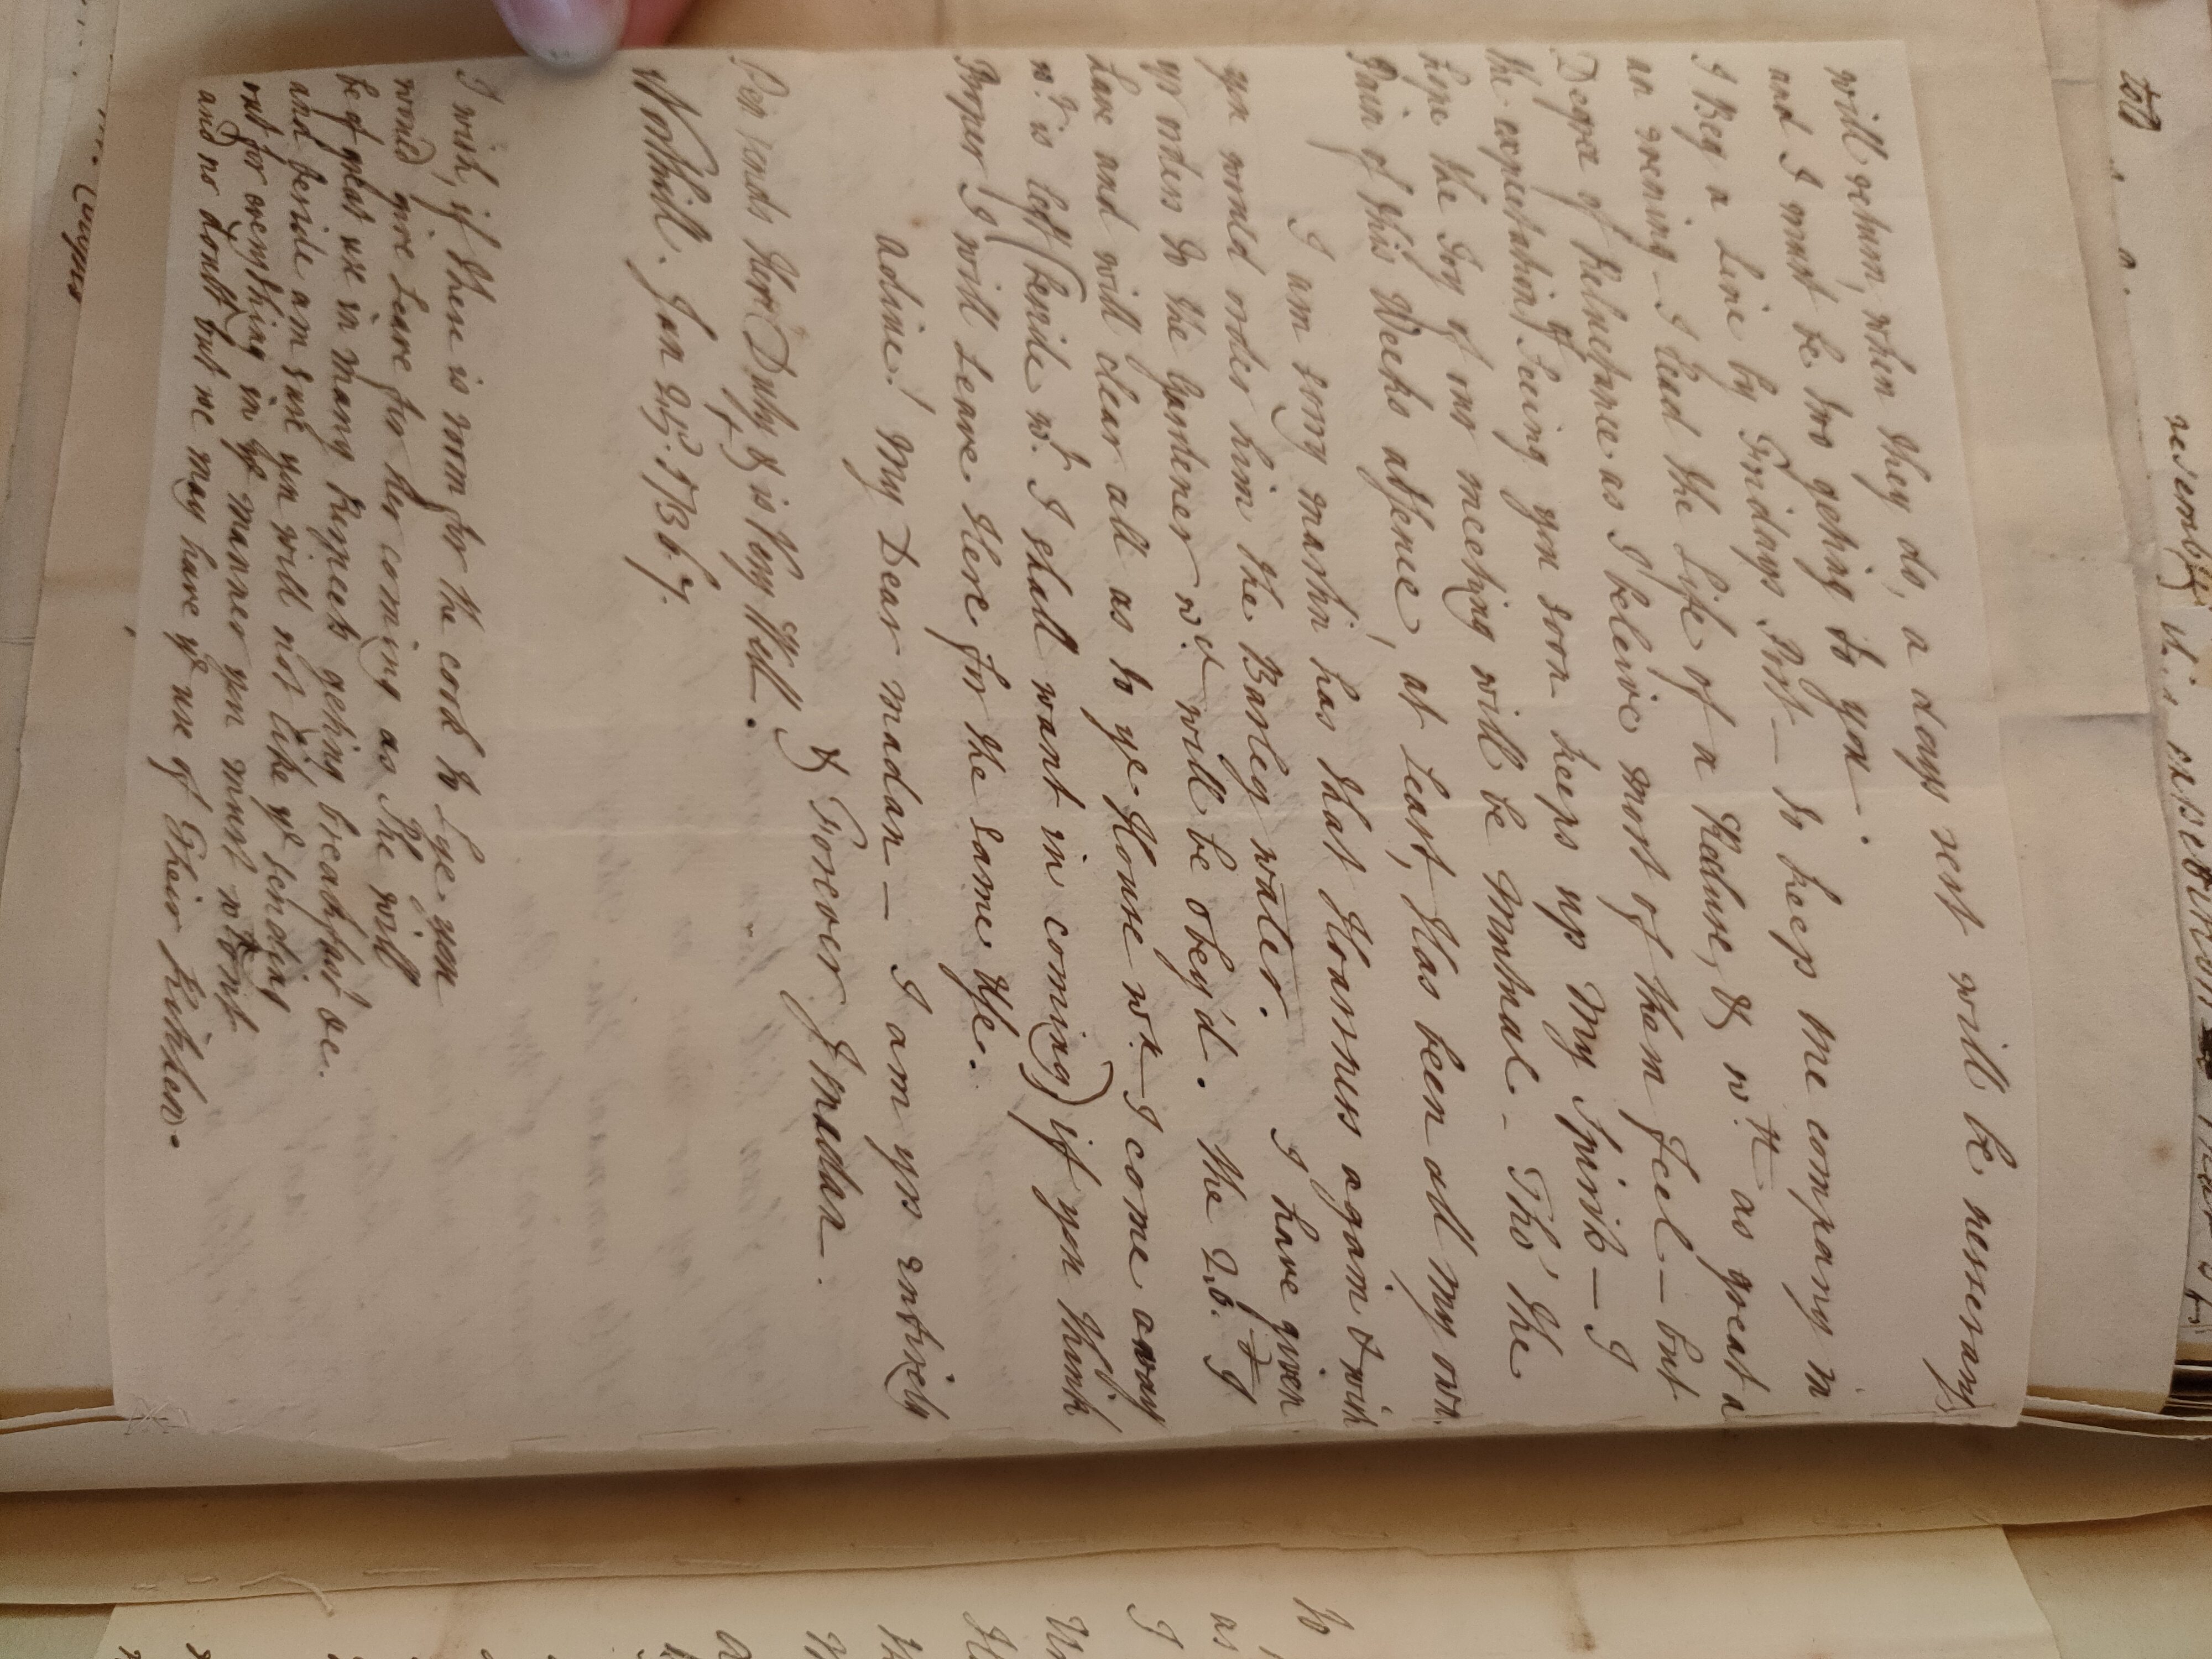 resembly this expedition that of
told
will return, when they do, a days rest will be nesserary,
and I must be two geting to you.
I Beg a Line by Fridays Post — to keep me company in
an evening — I lead the Life of a Recluse, & wth as great a
Degree of Reluctance as I beleive most of them feel — but
the expectation of Seeing you soon keeps up my Spirits — I
hope the Joy of our meeting will be Mutual — Tho' the
Pain of this Weeks absence, at Least, Has been all my own.
I am sorry martin has that Hoarsness again & wish
you would order him the Barley water. I have given
yr orders to the Gardener wch will be obey'd. The 20.£ I
have and will clear all as to ye House wn. I come away
wt. is left (beside wt. I shall want in coming) if you think
Proper I will Leave Here for the same Use.
adiue! my Dear madan — I am yrs entirely
& Forever J madan.
Pen sends Her Duty & is Very Well.
Northill. Jan 25. 1736.7.
I wish, if there is room for the cook to Lye you
would give Leave for her coming as She will
be of great use in many Respects geting breakfast &c.
and beside am sure you will not like ye sending
out for everything in ye manner you must wtout
and no doubt but we may have ye use of Their Kitchen.
to
as
I